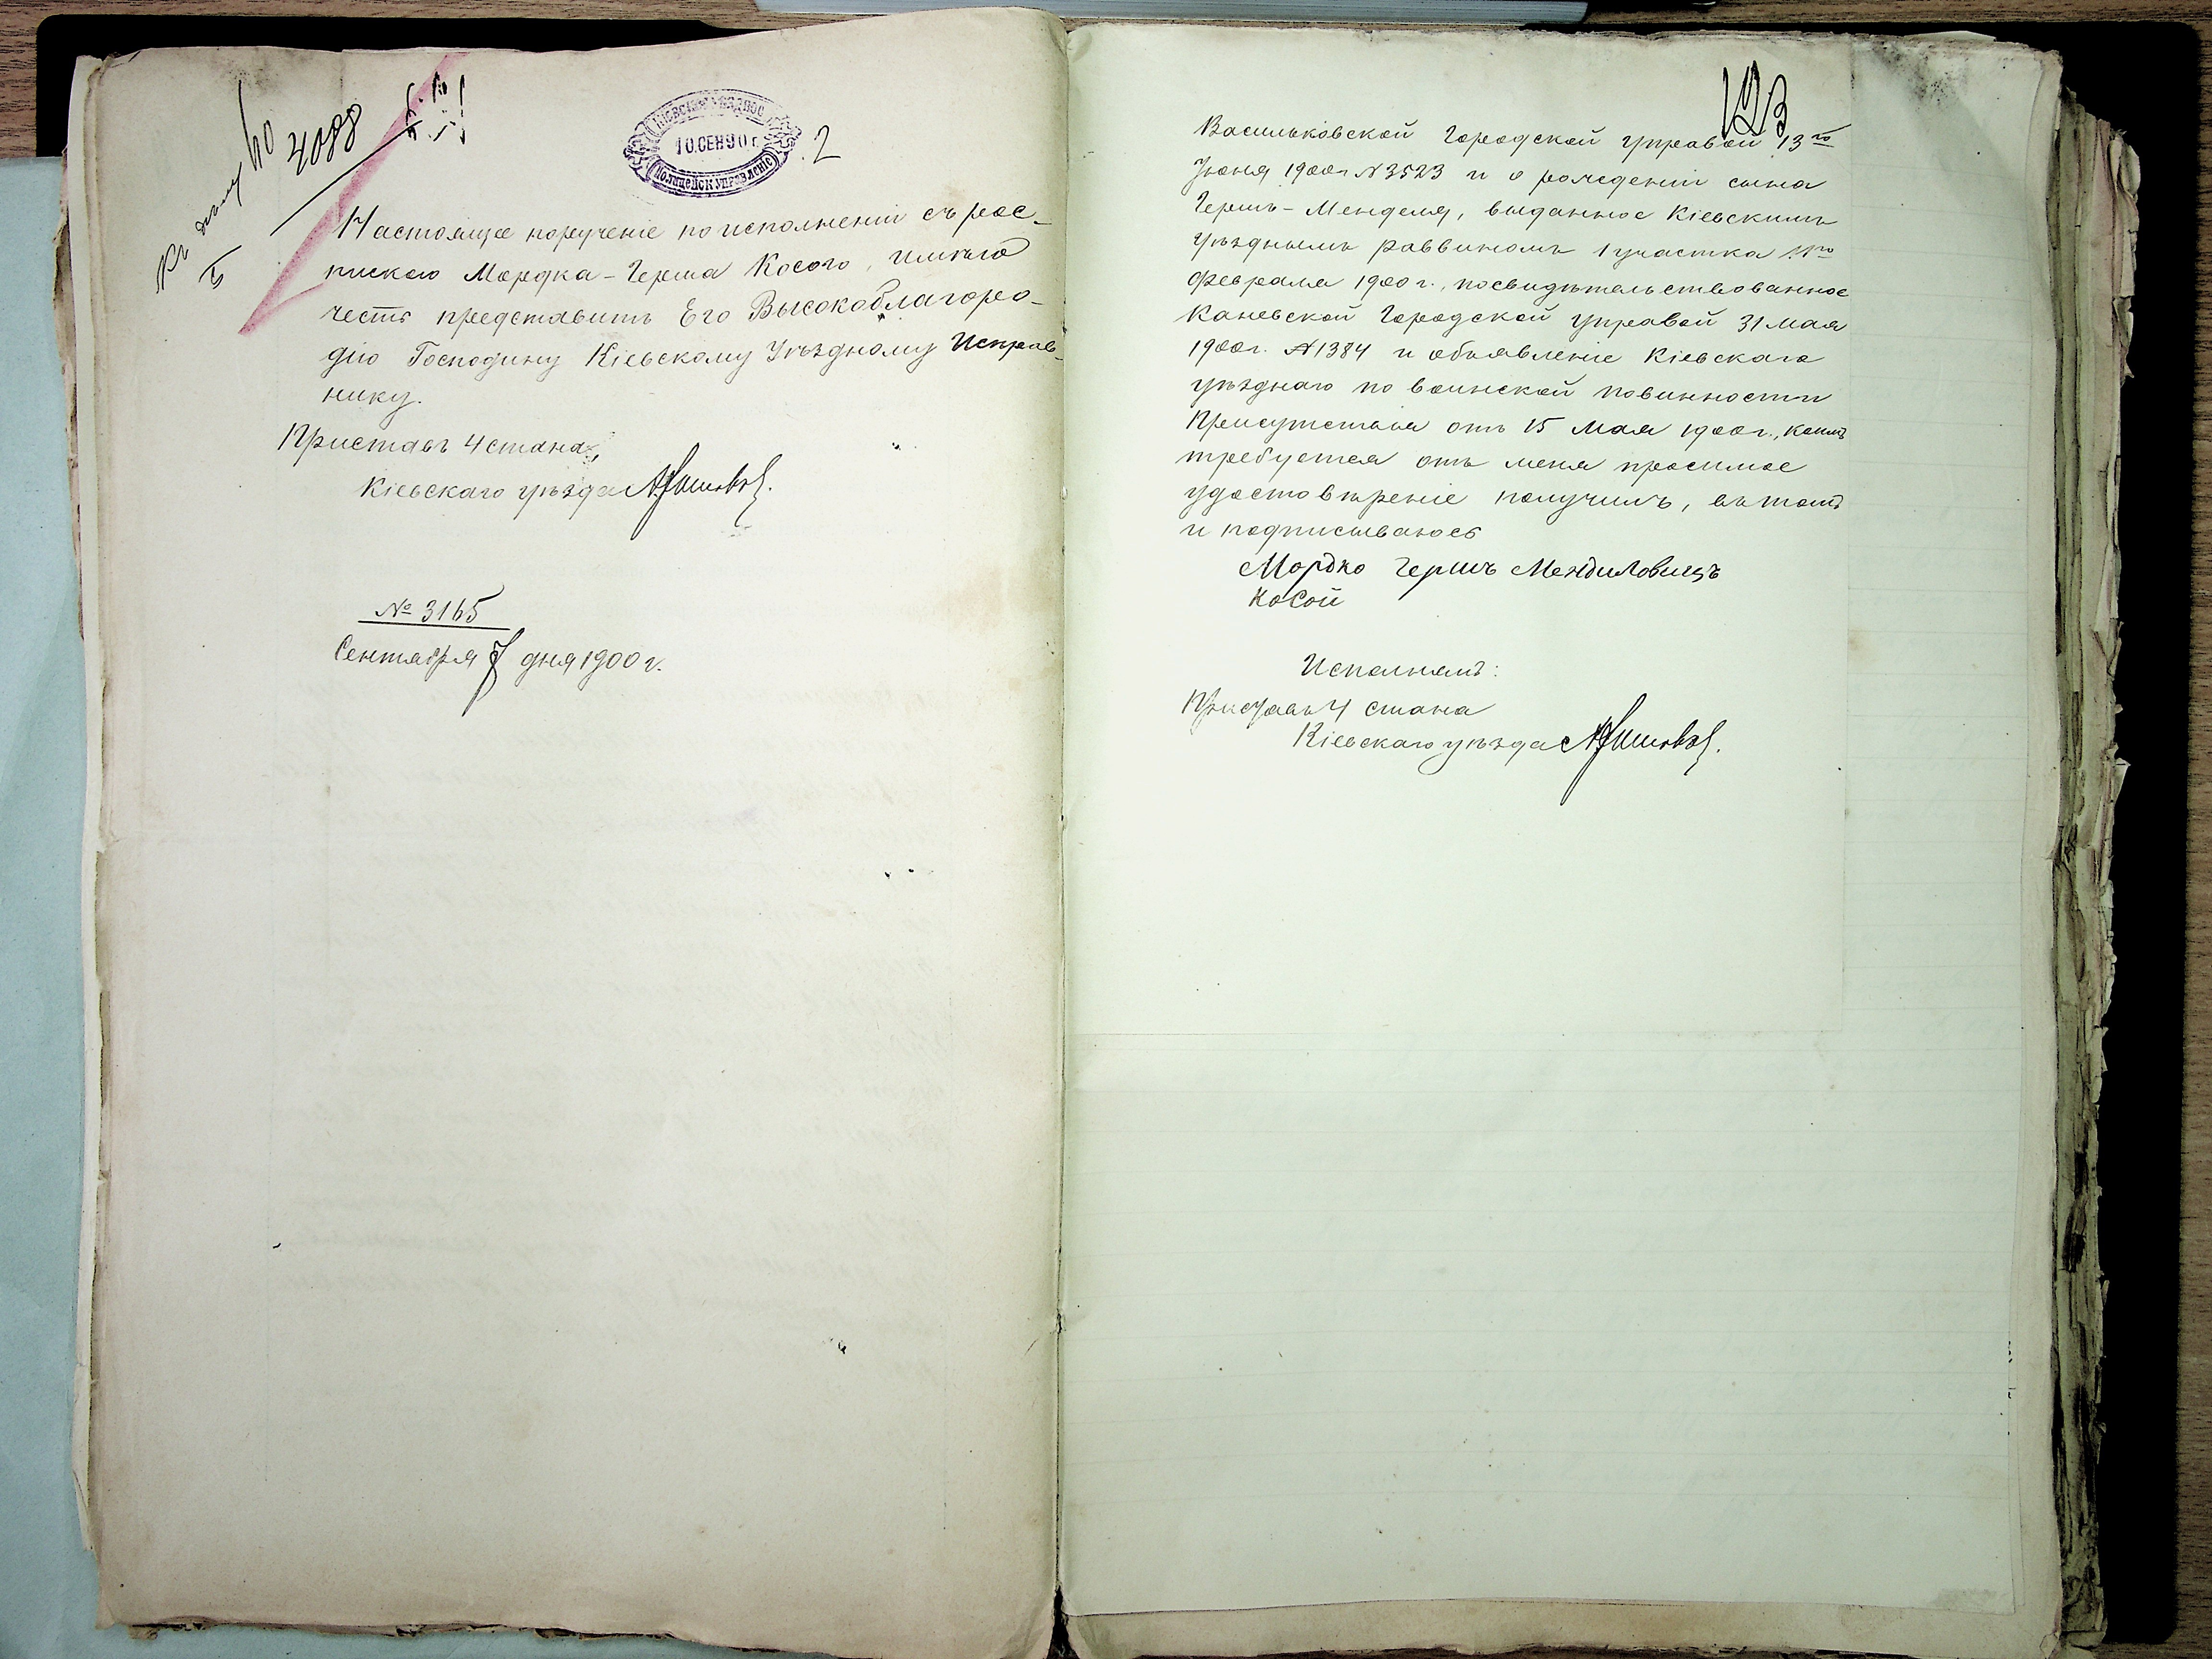 Къ дѣлу
КІЕВСКОЕ УѢЗДНОЕ
10. СЕН 90 г.
ПОЛИЦЕЙСК УПРАВЛЕНІЕ
2
Настоящее порученіе по исполненіи съ рос-
пискою Мордка-Герша Косого, имѣю
честь представить Его Высокоблагоро-
дію Господину Кіевскому Уѣздному Исправ-
нику.
Приставъ 4 стана,
Кіевскаго уѣзда
№ 3165
Сентября 7 дня 1900 г.
123
Васильковской Городской управой 13го
Іюня 1900 г. № 3523 и о рожденіи сына
Гершъ-Менделя, выданное Кіевскимъ
Уѣзднымъ раввиномъ 1 участка
Февраля 1900 г., посвидѣтельствованное
Каневской Городской управой 31 Мая
1900 г. № 1384 и объявленіе Кіевскаго
уѣзднаго по воинской повинности
Присутствія отъ 15 Мая 1900 г., коимъ
требуется отъ меня просимое
удостовѣреніе получилъ, въ томъ
и подписываюсь
Мордко Гершъ Мендиловичъ
Косой
Исполнялъ:
Приставъ 4 стана
Кіевскаго уѣзда